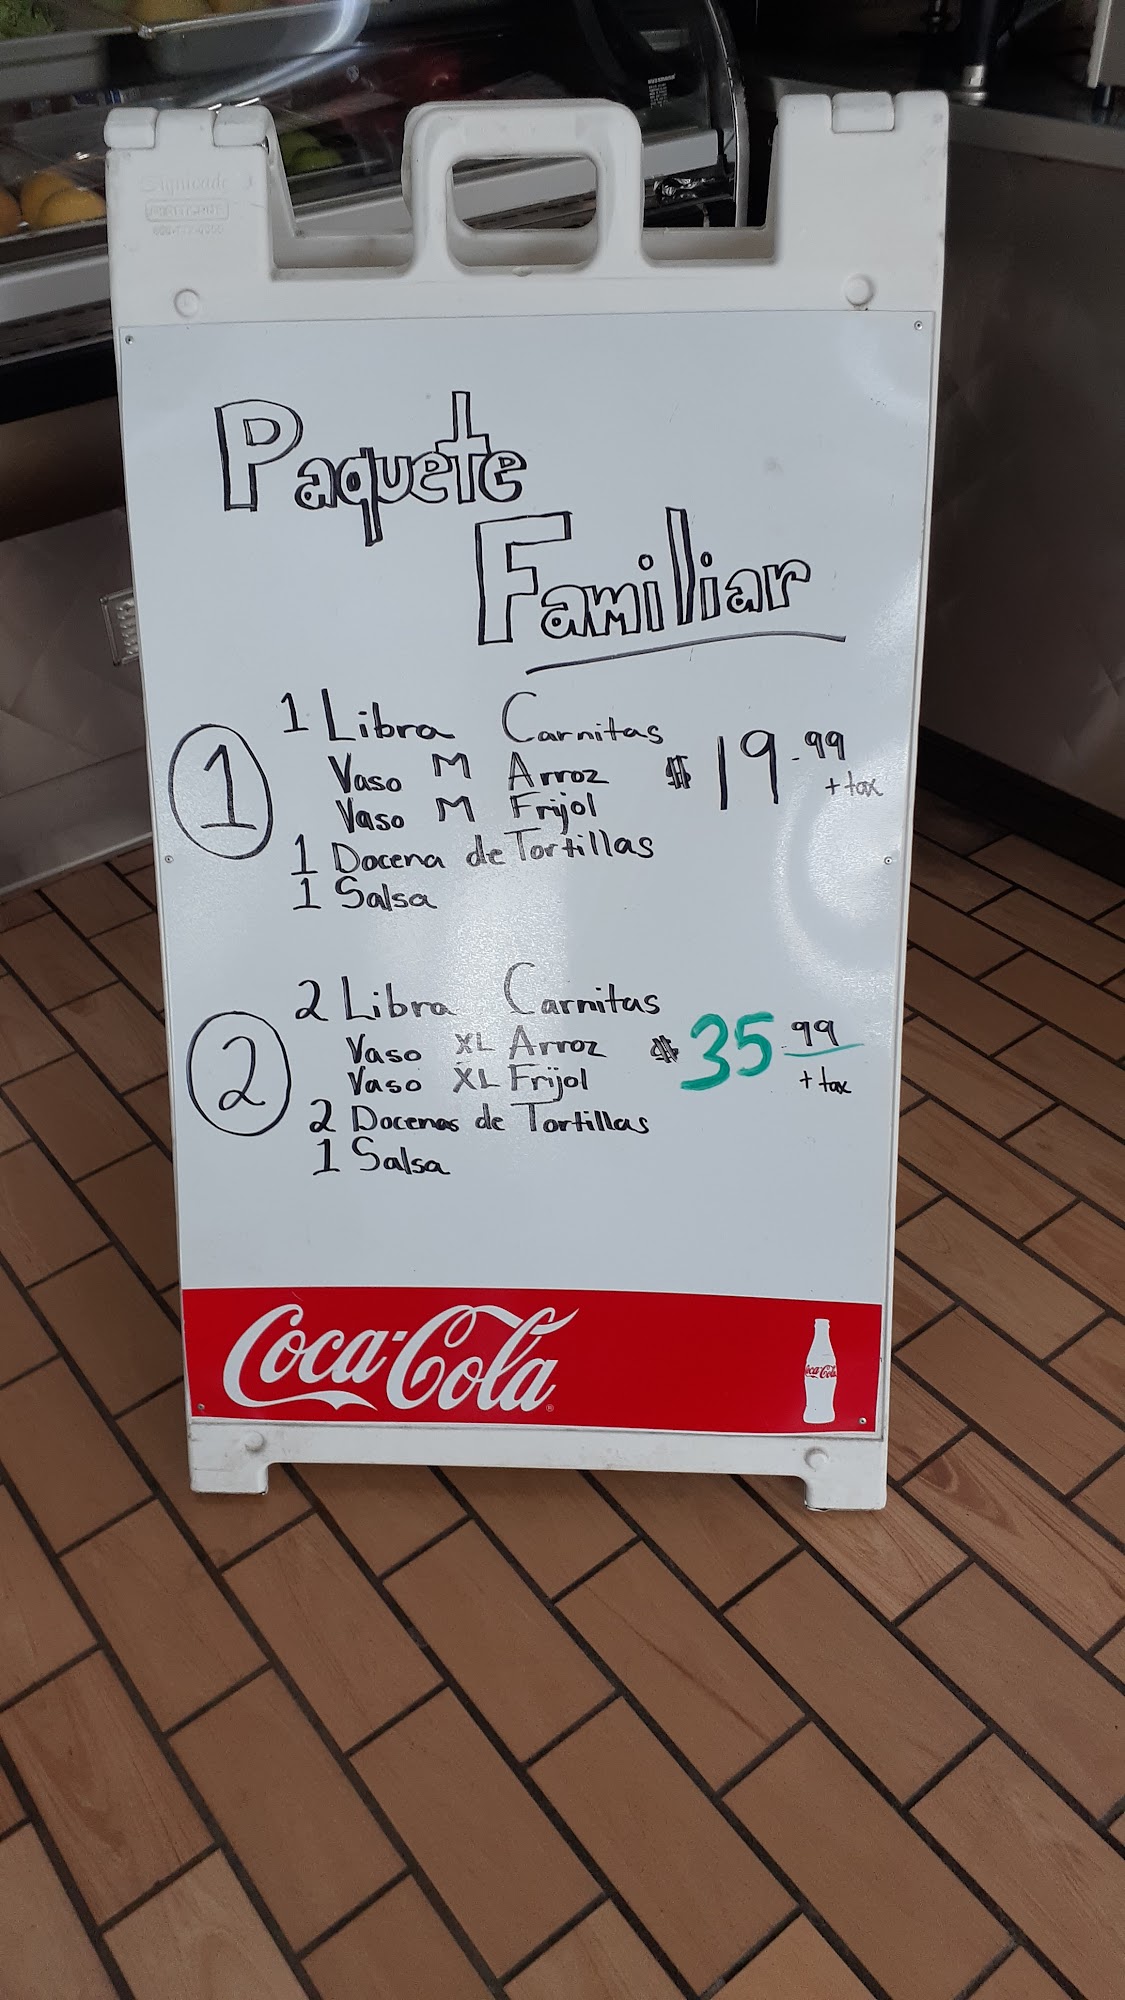 Signicade
Paquete
Familiar
1
1 Libra Carnitas
Vaso M Arroz
Vaso M Frijol
1 Docena de Tortillas
1 Salsa
$19.99
+ tax
2
2 Libra Carnitas
Vaso XL Arroz
Vaso XL Frijol
2 Docenas de Tortillas
1 Salsa
$35.99
+ tax
Coca-Cola
Coca-Cola